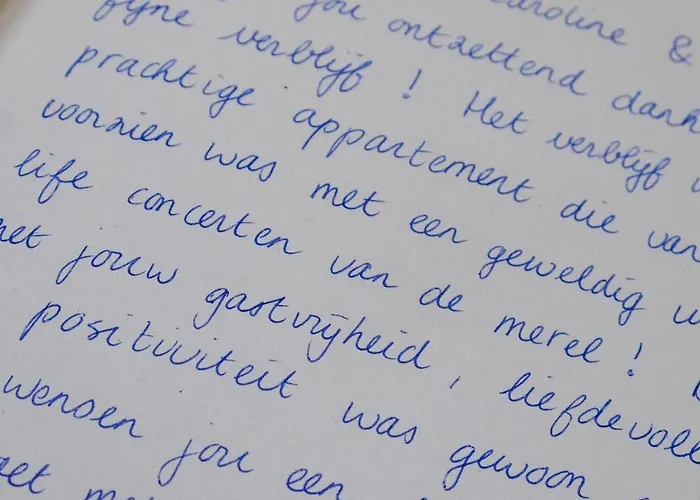 Caroline &
jou ontzettend dank
fijne verblijf ! Het verblijf
prachtige appartement die van
voorzien was met een geweldig
life concerten van de merel !
jouw gastvrijheid, liefdevoll
positiviteit was gewoon
wensen jou een